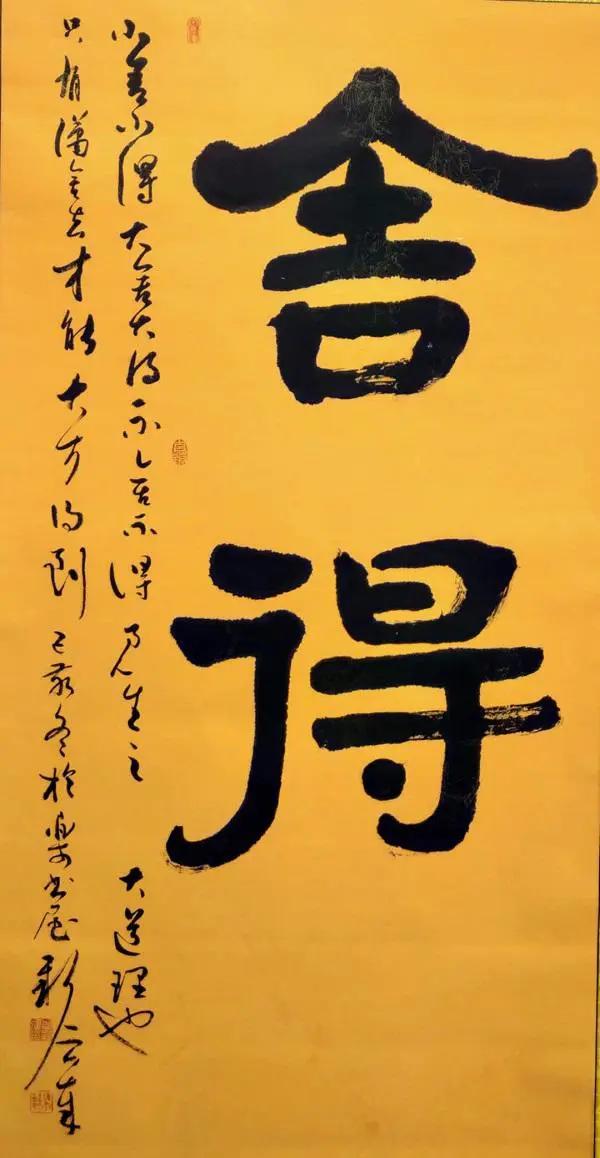 舍得
小舍小得大舍大得不舍不得人生之大道理也
只有舍去才能大方得到己亥冬於樂書屋